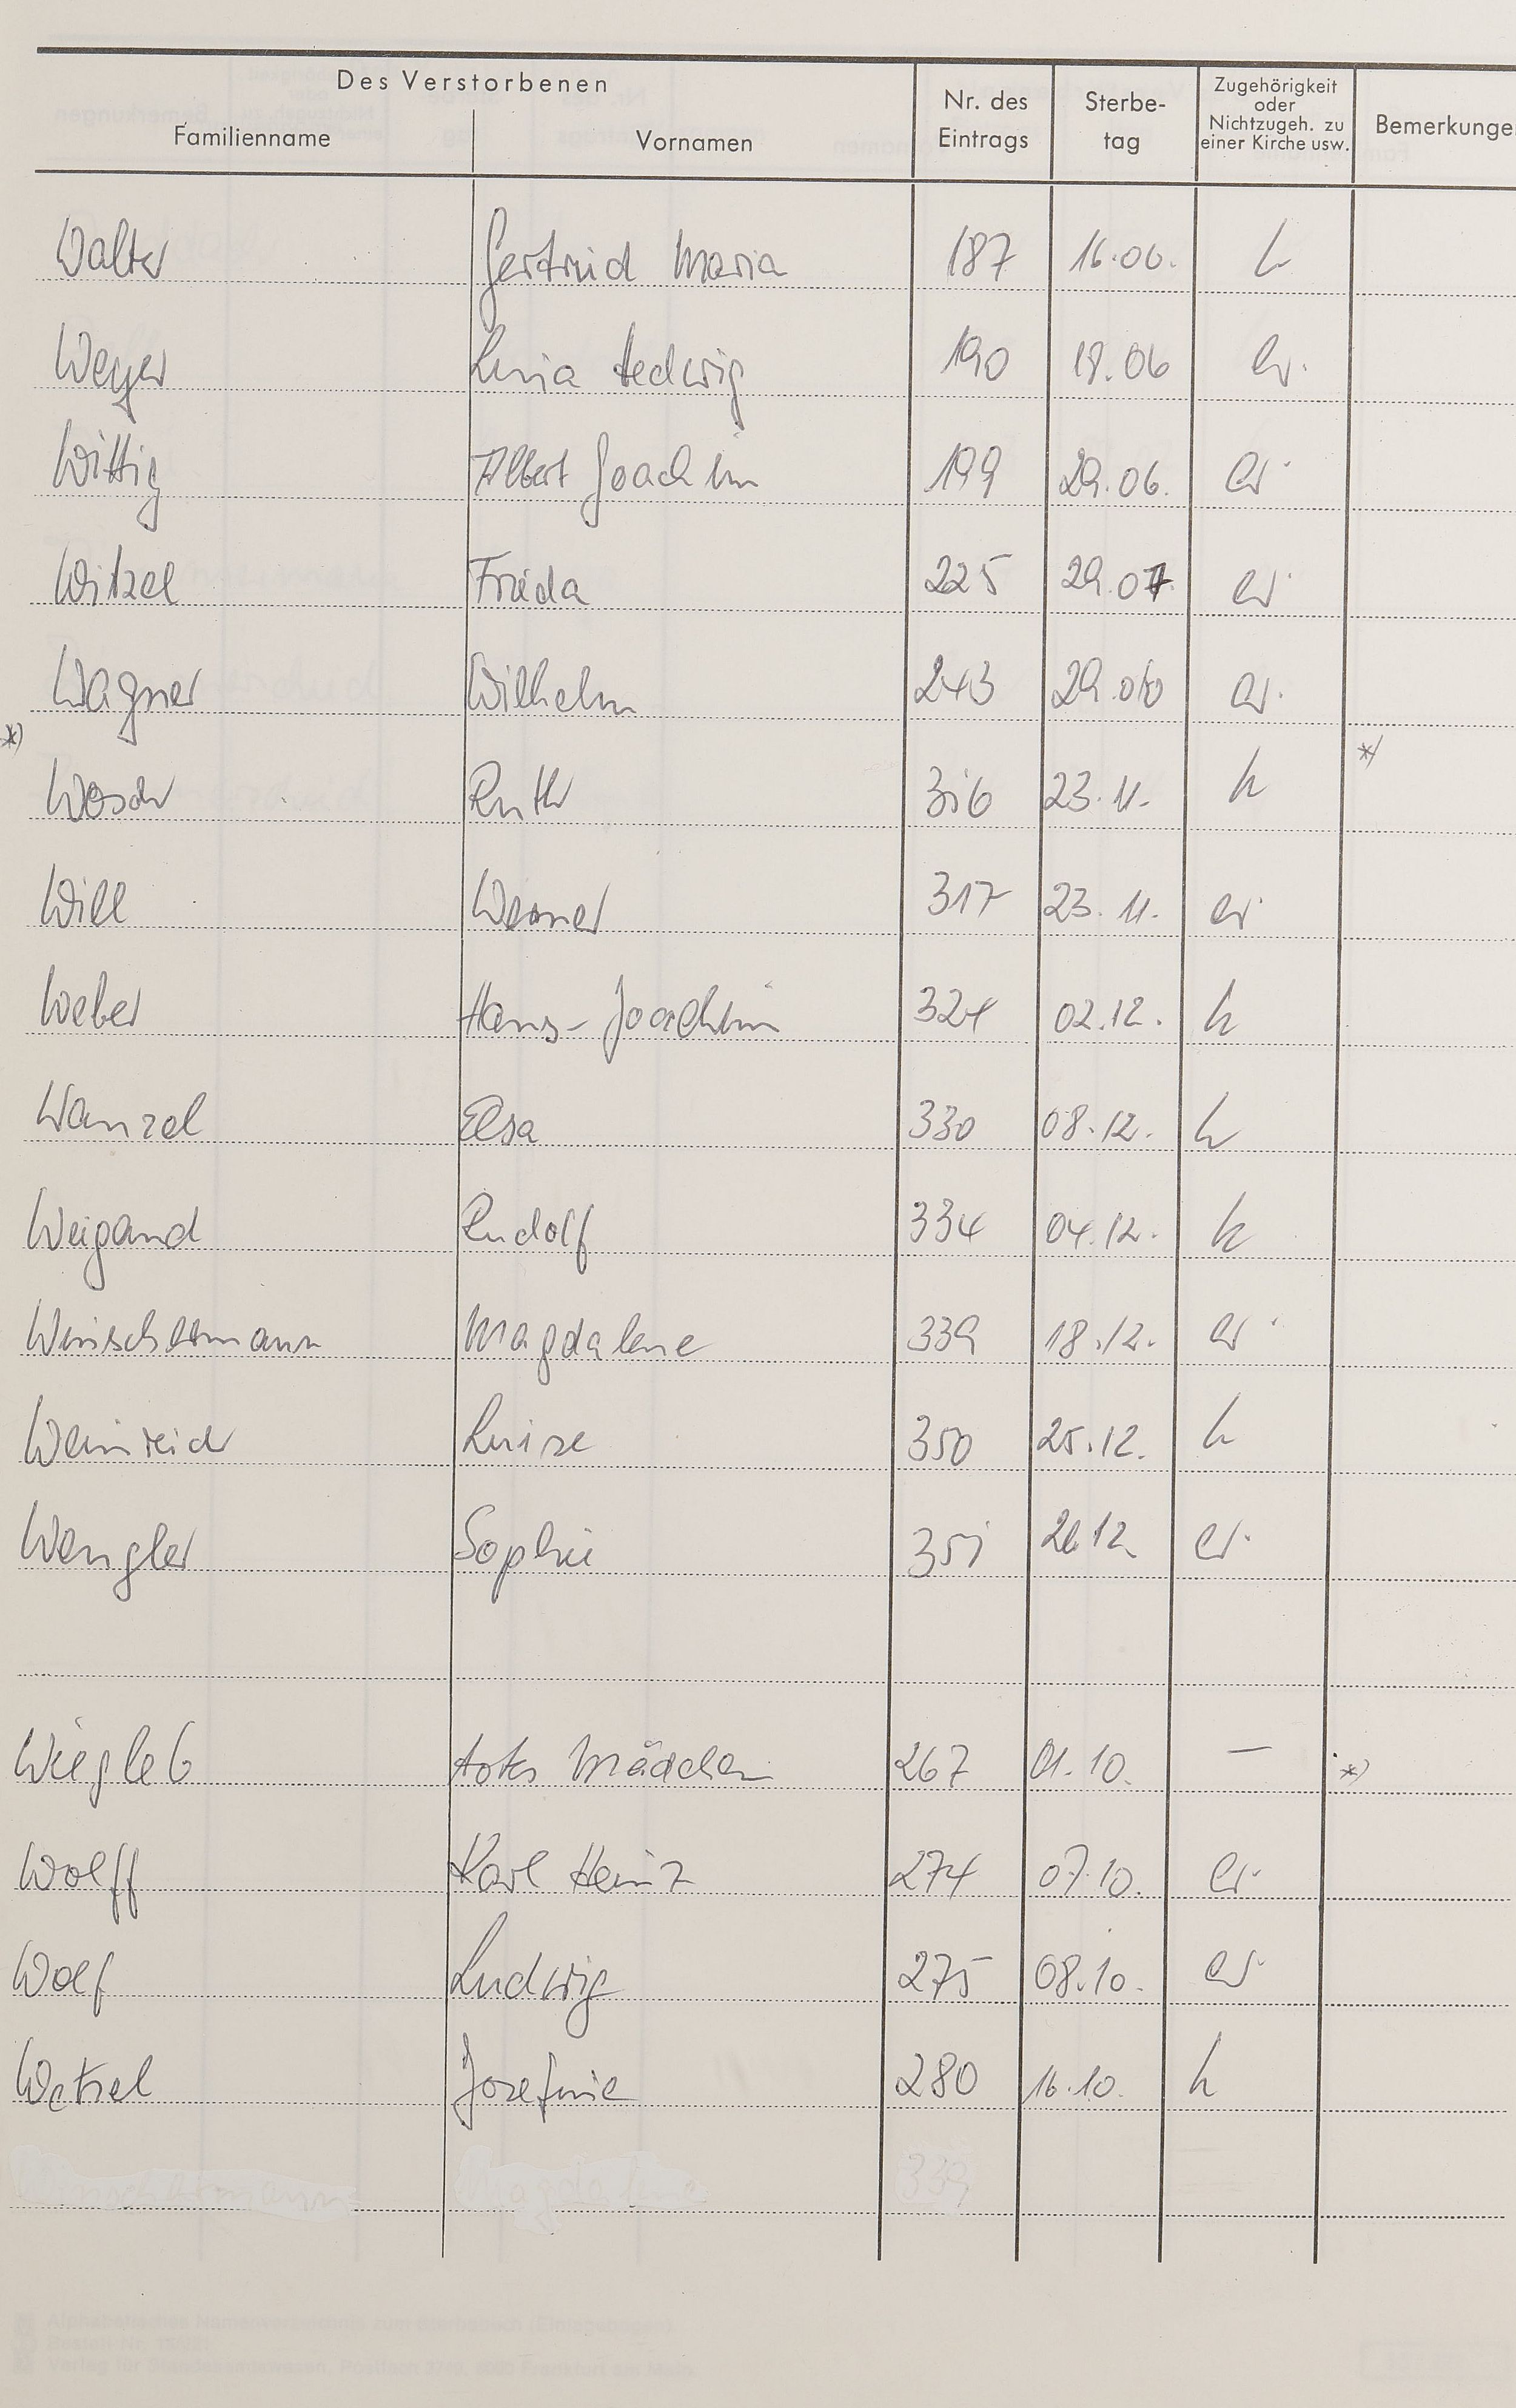 Des Verstorbenen
Familienname Vornamen Nr. des Eintrags Sterbe-tag Zugehörigkeit oder Nichtzugeh. zu einer Kirche usw. Bemerkunge
Walter Gertrud Maria 187 16.06. k
Weyer Luzia Hedwig 190 18.06 ev.
Wittig Albert Joachim 199 29.06. ev.
Witzel Frieda 225 29.07. ev.
Wagner Wilhelm 243 29.08 ev.
*) Wosch Ruth 316 23.11. k *)
Will Werner 317 23.11. ev.
Weber Hans-Joachim 324 02.12. k
Wanzel Elsa 330 08.12. k
Weigand Rudolf 334 04.12. k
Winschermann Magdalene 339 18.12. ev.
Weinreich Luise 350 25.12. k
Wengler Sophie 351 26.12. ev.
Wiegleb totes Mädchen 267 01.10. — *)
Wolff Karl Heinz 274 07.10. ev.
Wolf Ludwig 275 08.10. ev.
Wetzel Josefine 280 16.10. k
Magdalene 339